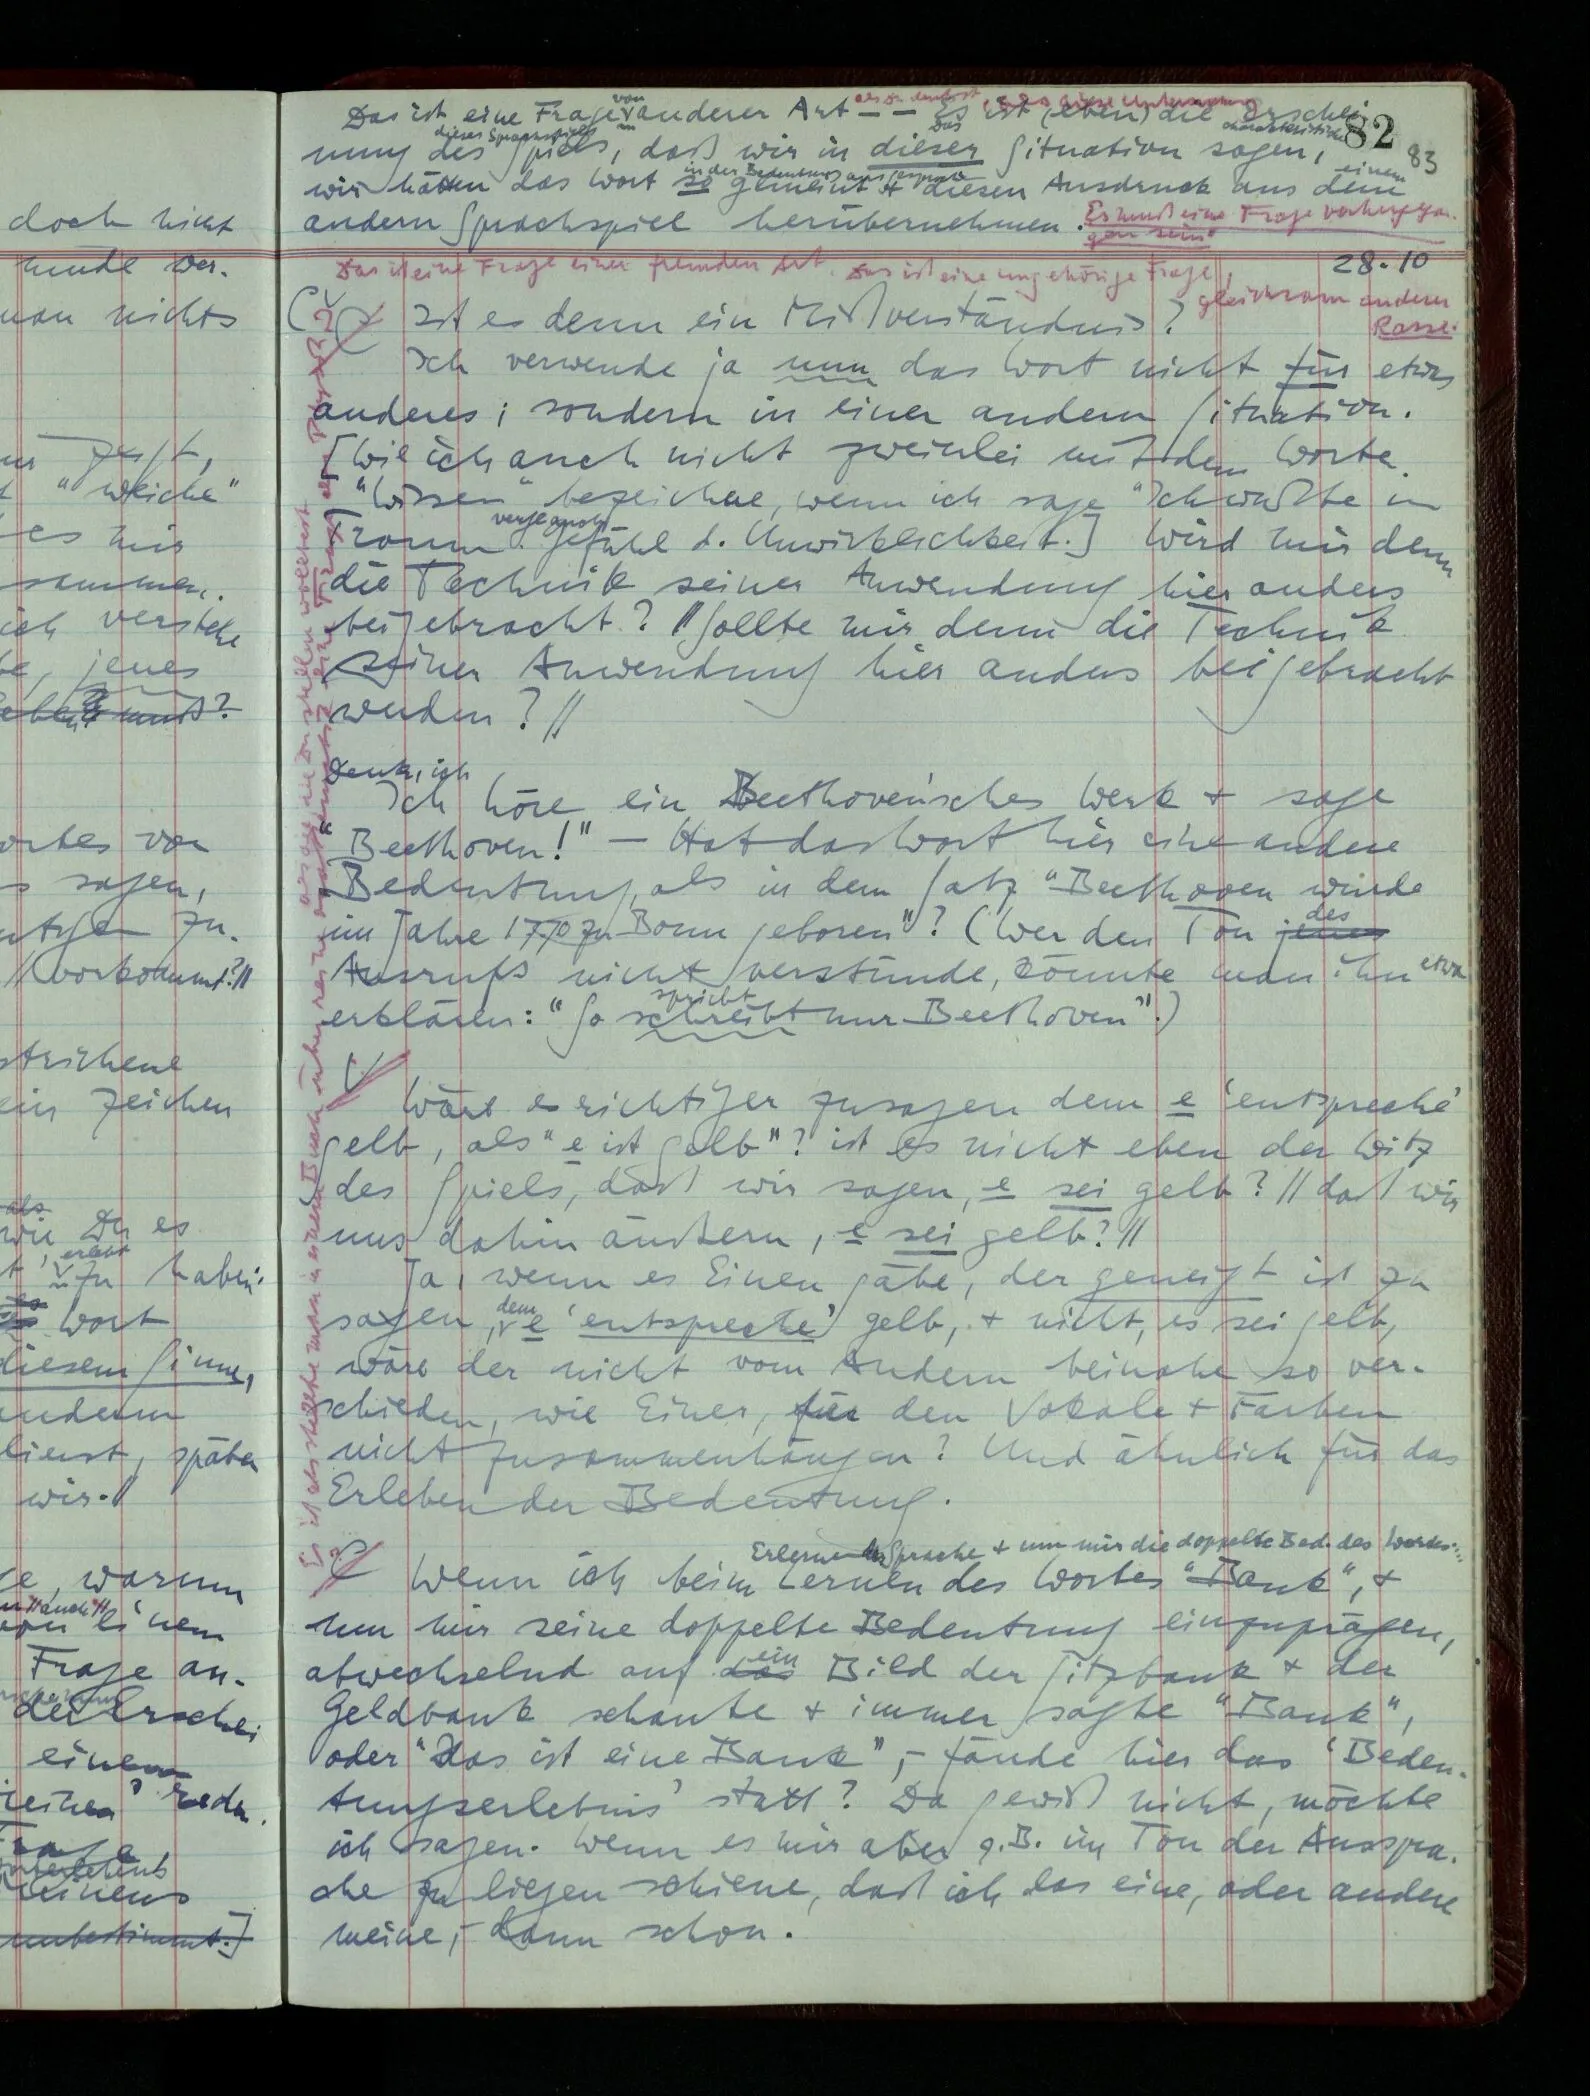 doch nicht
man nichts
"weiche"
es mir
ich verstehe
jenes
muß?
Wortes von
sagen,
//vorkommt?//
gestrichene
ein Zeichen
als
wie Du es
erlebt
zu haben
Wort
diesem Sinne,
andern
dient, später
wir.//
warum
//auch//
von einem
Frage an-
der Erschei
einem
reden.
Frage
Meinens
unbestimmt.]
82
83
von
Das ist eine Frage anderer Art – – Es ist (eben) die Erschei-
dieses Sprachspiels
Das
charakteristische
nung des Spiels, daß wir in dieser Situation sagen,
in der Bedeutung ausgesprochen
einem
wir hätten das Wort so gemeint & diesen Ausdruck aus dem
andern Sprachspiel herübernehmen. Es muß eine Frage vorhergegan-
gen sein.
28.10
Das ist eine Frage einer fremden Art. Das ist eine ungehörige Frage,
gleichsam anderer
Rasse.
Ist es denn ein Mißverständnis?
Ich verwende ja nun das Wort nicht für etwas
anderes; sondern in einer andern Situation.
[Wie ich auch nicht zweierlei mit dem Worte
"Wissen" bezeichne, wenn ich sage "Ich wußte im
Traum". Vergl. auch
Gefühl d. Unwirklichkeit.] Wird mir denn
die Technik seiner Anwendung hier anders
beigebracht? //Sollte mir denn die Technik
seiner Anwendung hier anders beigebracht
werden?//
Denk, ich
Ich höre ein Beethoven'sches Werk & sage
"Beethoven!" – Hat das Wort hier eine andere
Bedeutung, als in dem Satz "Beethoven wurde
im Jahre 1770 zu Bonn geboren"? (Wer den Ton jenes
des
Ausrufs nicht verstünde, könnte man ihn etwa
spricht
erklären: "So schreibt nur Beethoven".)
Wäre es richtiger zu sagen dem e 'entspreche'
gelb, als "e ist gelb"? ist es nicht eben der Witz
des Spiels, daß wir sagen, e sei gelb? //daß wir
uns dahin äußern, e sei gelb?//
Ja, wenn es Einen gäbe, der geneigt ist zu
dem
sagen, e 'entspreche' gelb, & nicht, es sei gelb,
wäre der nicht vom Andern beinahe so ver-
schieden, wie Einer, für den Vokale & Farben
nicht zusammenhängen? Und ähnlich für das
Erleben der Bedeutung.
Erlernen der Sprache & um mir die doppelte Bed. des Wortes
Wenn ich beim Lernen des Wortes "Bank", &
um mir seine doppelte Bedeutung einzuprägen,
ein
abwechselnd auf das Bild der Sitzbank & der
Geldbank schaute & immer sagte "Bank",
oder "Das ist eine Bank", – fände hier das 'Bedeu-
tungserlebnis' statt? Da gewiß nicht, möchte
ich sagen. Wenn es mir aber z.B. im Ton der Ausspra-
che zu liegen schiene, daß ich das eine, oder andere
meine, – dann schon.